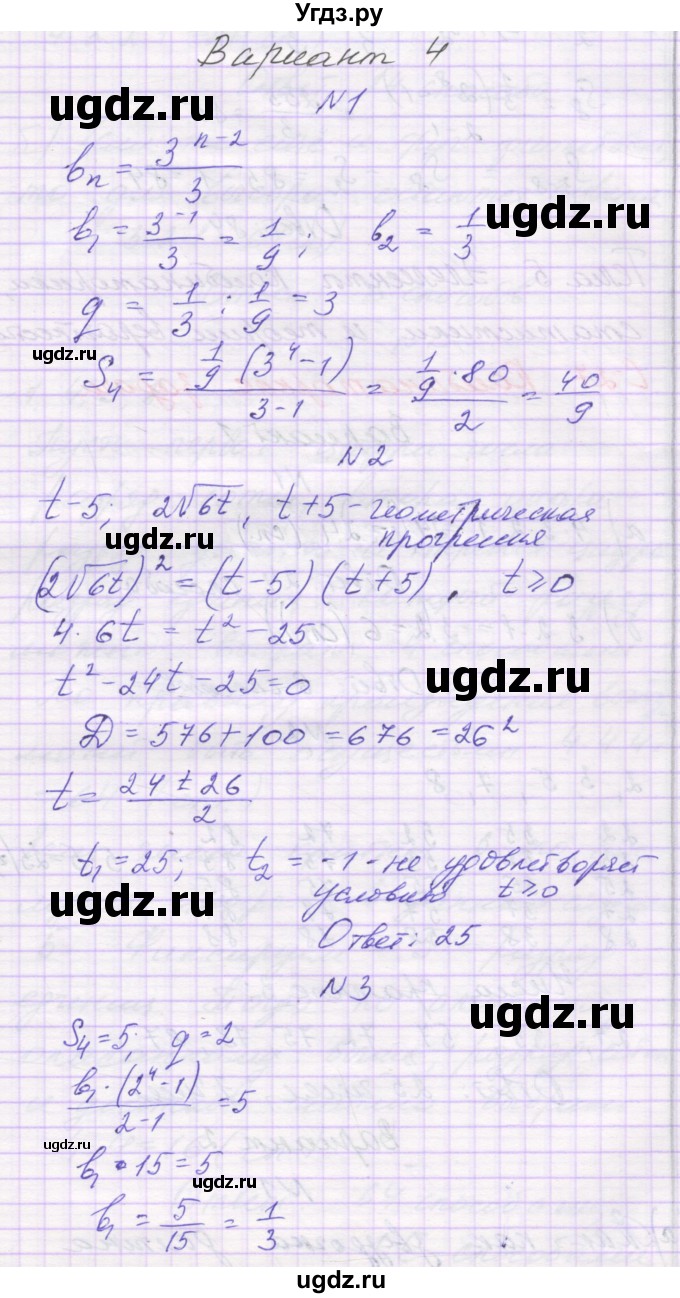 Угдз.ру
Вариант 4
ugdz.ru
N1
bₙ = 3ⁿ⁻²/3
ugdz.ru
b₁ = 3⁻¹/3 = 1/9; b₂ = 1/3
q = 1/3 : 1/9 = 3
ugdz.ru
S₄ = 1/9 (3⁴-1)/3-1 = 1/9·80/2 = 40/9
N2
t-5; 2√6t, t+5 - геометрическая
прогрессия
ugdz.ru
(2√6t)² = (t-5)(t+5), t≥0
4·6t = t²-25
t²-24t-25=0
ugdz.ru
D = 576+100 = 676 = 26²
t = 24±26/2
t₁=25; t₂ = -1 - не удовлетворяет
условию t≥0
ugdz.ru
Ответ: 25
N3
ugdz.ru
S₄=5; q=2
b₁·(2⁴-1)/2-1 = 5
ugdz.ru
b₁·15=5
ugdz.ru
b₁ = 5/15 = 1/3
ugdz.ru